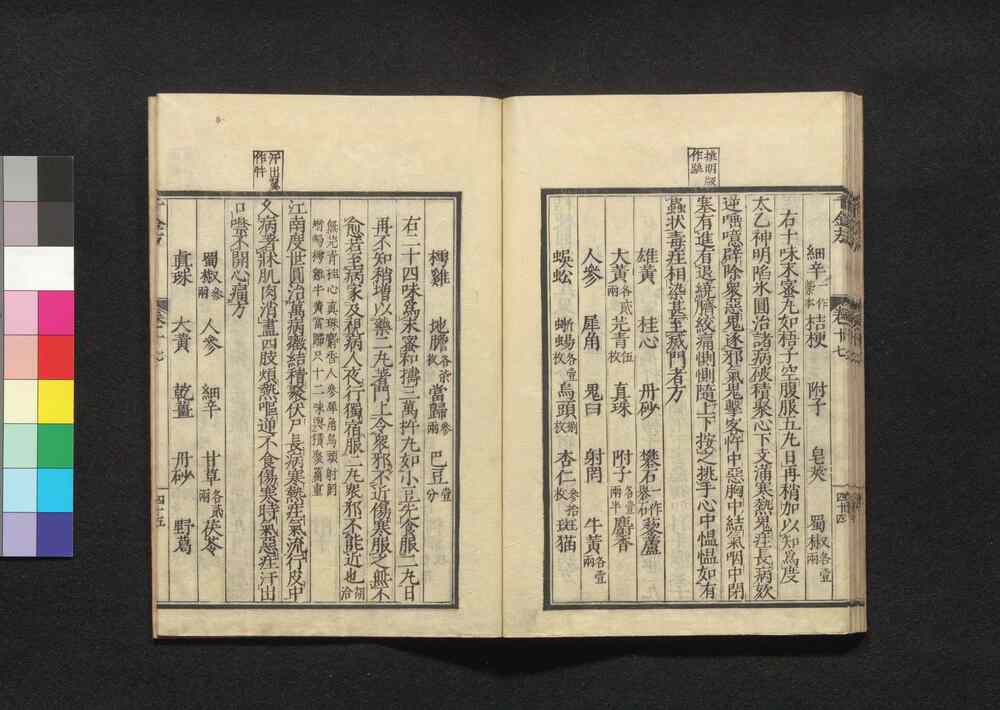 挑明版
作跳
細辛一作蒙本 桔梗 附子 皂莢 蜀椒各壹兩
右十味末蜜丸如梧子空腹服五丸日再稍加以知爲度
太乙神明陷氷圓治諸病破積聚心下支滿寒熱鬼疰長病欬
逆唾噫辟除衆惡鬼逐邪氣鬼擊客忤中惡胸中結氣咽中閉
塞有進有退繞臍絞痛惻惻隨上下按之挑手心中慍慍如有
蟲狀毒疰相染甚至滅門者方
雄黃 桂心 丹砂 礬石一作礜石 藜蘆
大黃各貳兩 芫青伍枚 真珠 附子各壹兩半 麝香
人參 犀角 鬼臼 射罔 牛黃各壹兩
蜈蚣 蜥蜴各壹枚 烏頭捌枚 杏仁叁拾枚 斑猫
千金方 卷十七 四十四
樗雞 地膽各柒枚 當歸叁兩 巴豆壹分
右二十四味爲末蜜和擣三萬杵丸如小豆先食服二丸日
再不知稍增以藥二丸著門上令衆邪不近傷寒服之無不
愈若至病家及視病人夜行獨宿服二丸衆邪不能近也
江南度世圓治萬病癥結積聚伏尸長病寒熱疰氣流行皮中
久病著牀肌肉消盡四肢煩熱嘔逆不食傷寒時氣惡疰汗出
口噤不開心痛方
蜀椒叁兩 人參 細辛 甘草各貳兩 茯苓
真珠 大黃 乾薑 丹砂 野葛
千金方 卷十七 四十五